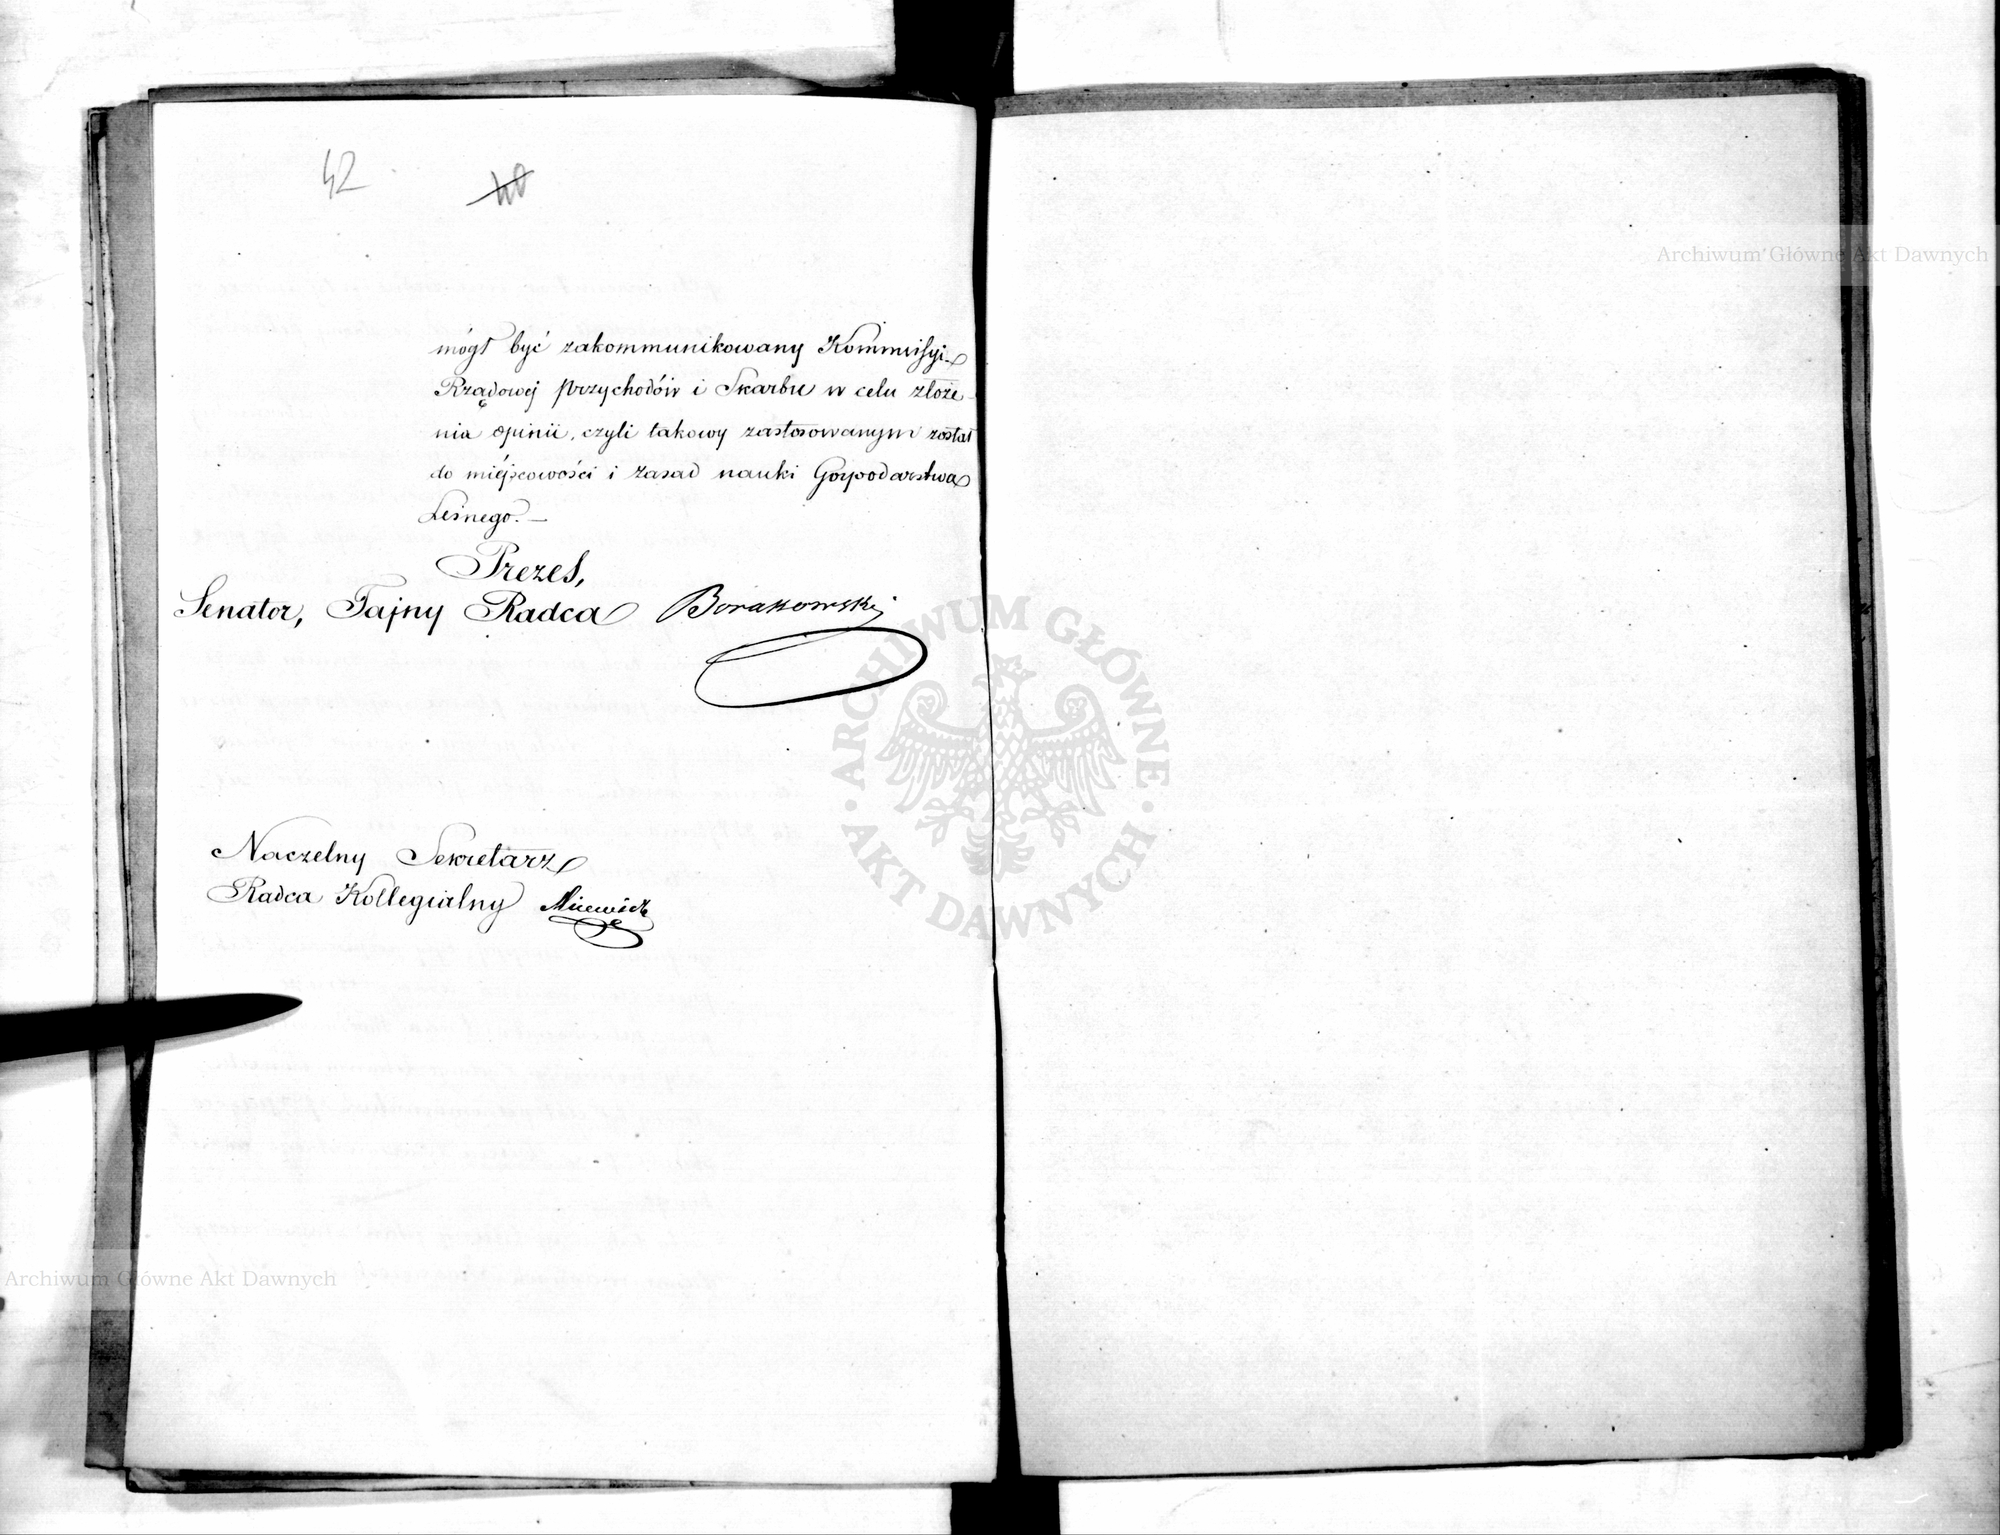 42
40
mógł być zakommunikowany Kommissyi
Rządowej Przychodów i Skarbu w celu złoże-
nia opinii, czyli takowy zastosowanym został
do miéjscowości i zasad nauki Gospodarstwa
Leśnego. —
Prezes,
Senator, Tajny Radca
Naczelny Sekretarz
Radca Kollegialny
Archiwum Główne Akt Dawnych
ARCHIWUM GŁÓWNE
AKT DAWNYCH
Archiwum Główne Akt Dawnych